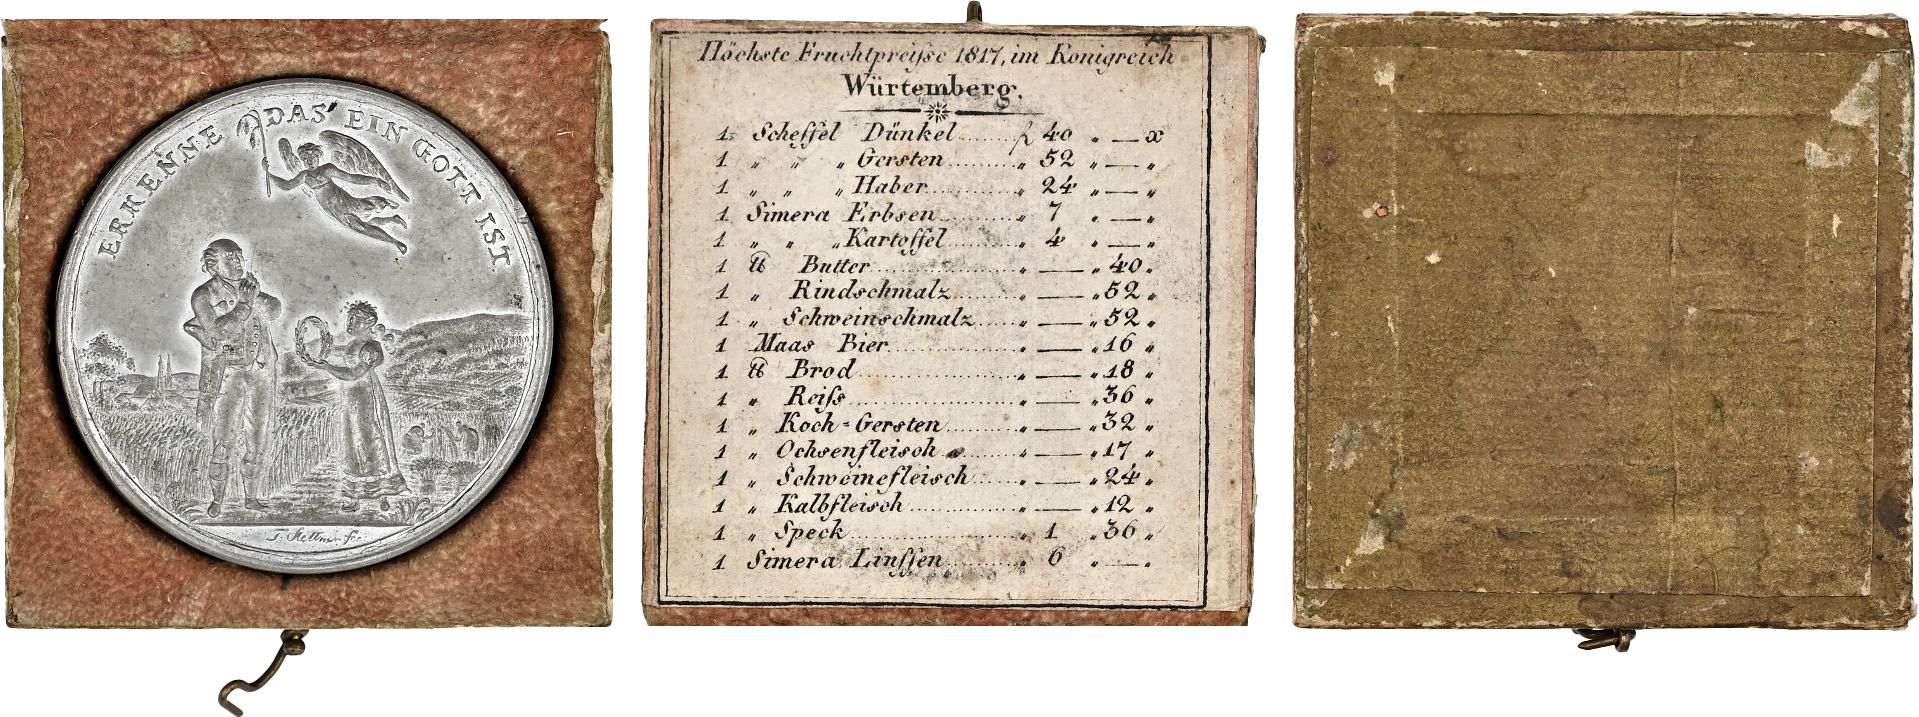 ERKENNE DAS EIN GOTT IST.
Höchste Fruchtpreiſse 1817, im Konigreich
Würtemberg.
1 Scheffel Dünkel ........ f 40 „ — x
1 „ „ „ Gersten ........ „ 52 „ — „
1 „ „ „ Haber ........ „ 24 „ — „
1 Simera Erbsen ........ „ 7 „ — „
1 „ „ „ Kartoffel ........ „ 4 „ — „
1 ℔ Butter ........ „ — „ 40 „
1 „ Rindschmalz ........ „ — „ 52 „
1 „ Schweinschmalz ..... „ — „ 52 „
1 Maas Bier ........ „ — „ 16 „
1 ℔ Brod ........ „ — „ 18 „
1 „ Reiſs ........ „ — „ 36 „
1 „ Koch=Gersten ........ „ — „ 32 „
1 „ Ochsenfleisch ........ „ — „ 17 „
1 „ Schweinefleisch ........ „ — „ 24 „
1 „ Kalbfleisch ........ „ — „ 12 „
1 „ Speck ........ „ 1 „ 36 „
1 Simera Linſsen ........ „ 6 „ — „